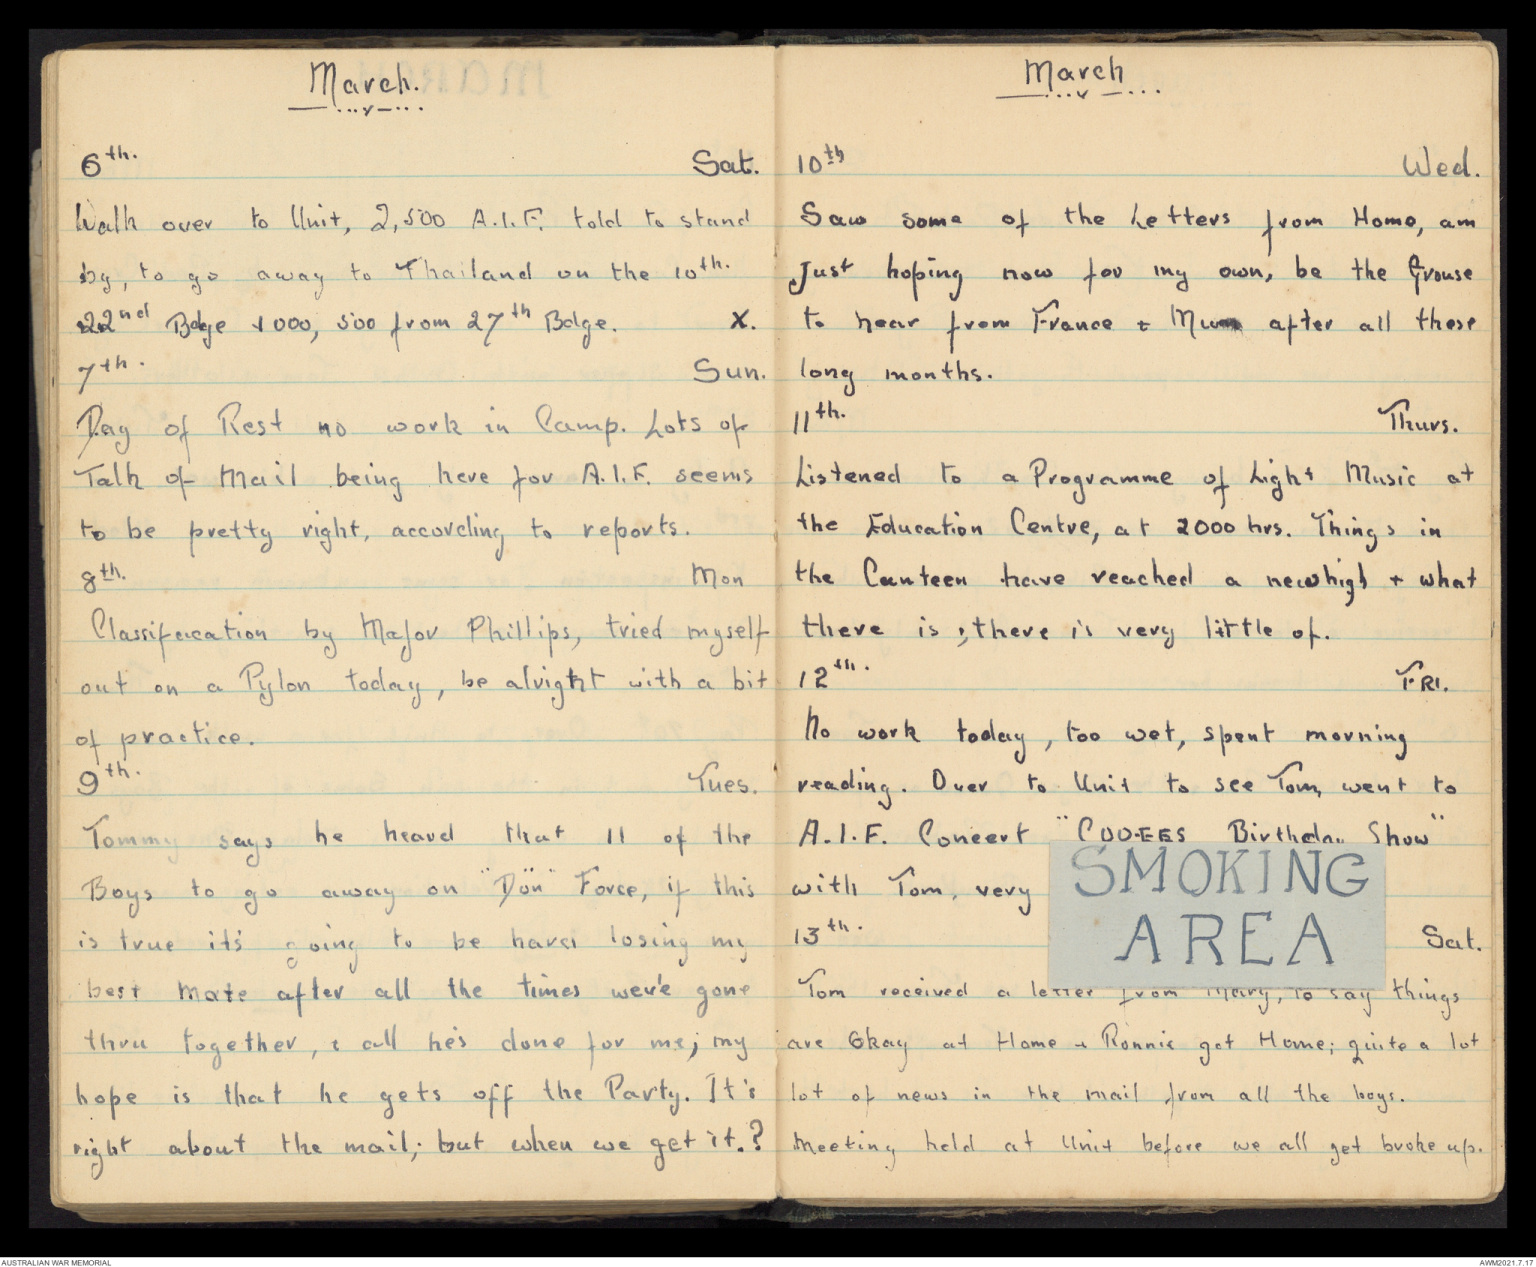 March.
6th. Sat.
Walk over to Unit, 2,500 A.I.F. told to stand
by, to go away to Thailand on the 10th.
22nd Bdge 1000, 500 from 27th Bdge. X.
7th. Sun.
Day of Rest no work in Camp. Lots of
Talk of Mail being here for A.I.F. seems
to be pretty right, according to reports.
8th. Mon
Classification by Major Phillips, tried myself
out on a Pylon today, be alright with a bit
of practice.
9th. Tues.
Tommy says he heard that 11 of the
Boys to go away on "Don" Force, if this
is true it's going to be hard losing my
best mate after all the times we've gone
thru together, & all he's done for me; my
hope is that he gets off the Party. It's
right about the mail; but when we get it.?
March
10th Wed.
Saw some of the Letters from Home, am
Just hoping now for my own, be the Grouse
to hear from France & Mum after all these
long months.
11th. Thurs.
Listened to a Programme of Light Music at
the Education Centre, at 2000 hrs. Things in
the Canteen have reached a new high & what
there is, there is very little of.
12th. FRI.
No work today, too wet, spent morning
reading. Over to Unit to see Tom, went to
A.I.F. Concert "COOEES Birthday Show"
with Tom, very
SMOKING
AREA
13th. Sat.
Tom received a letter from Mary, to say things
are Okay at Home & Ronnie got Home; quite a lot
lot of news in the mail from all the boys.
Meeting held at Unit before we all get broke up.
AUSTRALIAN WAR MEMORIAL
AWM2021.7.17